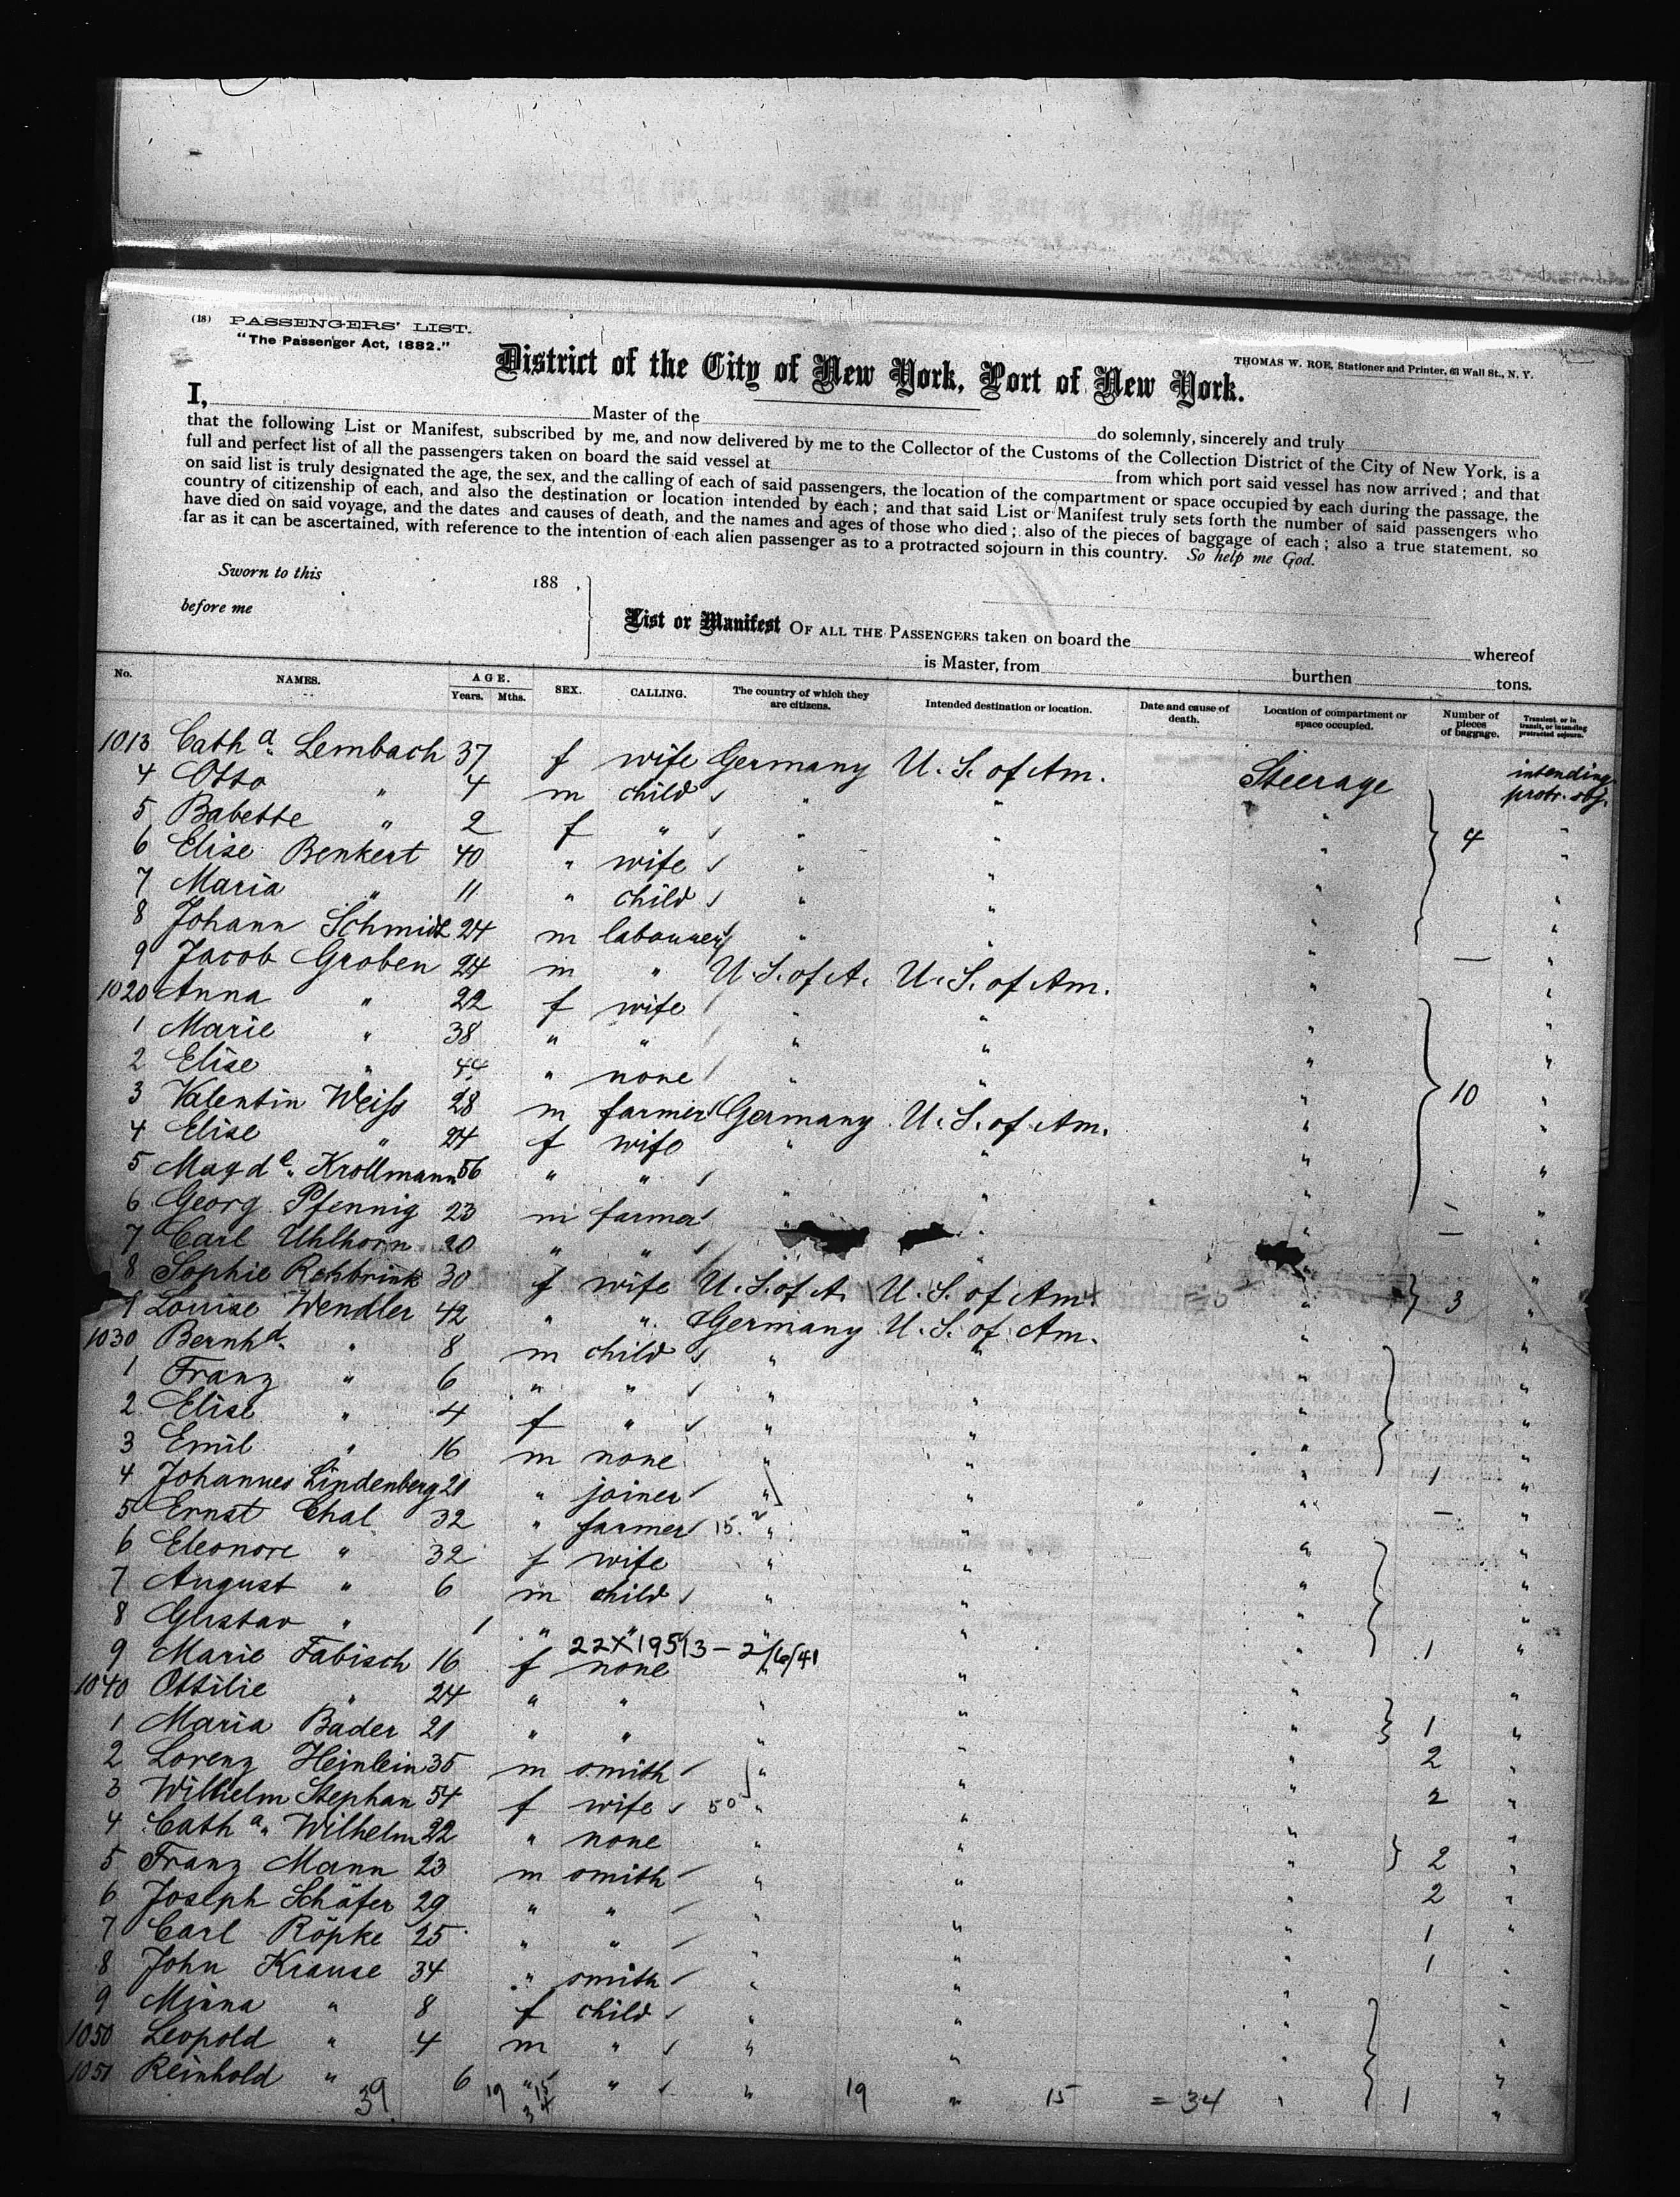 (18) PASSENGERS' LIST.
"The Passenger Act, 1882."
THOMAS W. ROE, Stationer and Printer, 63 Wall St., N. Y.
District of the City of New York, Port of New York.
I, Master of the do solemnly, sincerely and truly
that the following List or Manifest, subscribed by me, and now delivered by me to the Collector of the Customs of the Collection District of the City of New York, is a
full and perfect list of all the passengers taken on board the said vessel at from which port said vessel has now arrived; and that
on said list is truly designated the age, the sex, and the calling of each of said passengers, the location of the compartment or space occupied by each during the passage, the
country of citizenship of each, and also the destination or location intended by each; and that said List or Manifest truly sets forth the number of said passengers who
have died on said voyage, and the dates and causes of death, and the names and ages of those who died; also of the pieces of baggage of each; also a true statement, so
far as it can be ascertained, with reference to the intention of each alien passenger as to a protracted sojourn in this country. So help me God.
Sworn to this 188 ,
before me
List or Manifest OF ALL THE PASSENGERS taken on board the whereof
is Master, from burthen tons.
No. NAMES. AGE. Years. Mths. SEX. CALLING. The country of which they are citizens. Intended destination or location. Date and cause of death. Location of compartment or space occupied. Number of pieces of baggage. Transient, or in transit, or intending protracted sojourn.
1013 Cath a. Lembach 37 f wife Germany U. S. of Am. Steerage intending protr. soj.
4 Otto " 4 m child " " " "
5 Babette " 2 f " " " " 4 "
6 Elise Benkert 40 " wife " " " "
7 Maria " 11 " child " " " "
8 Johann Schmidt 24 m labourer " " " — "
9 Jacob Groben 24 m " U. S. of A. U. S. of Am. " "
1020 Anna " 22 f wife " " " "
1 Marie " 38 " " " " " "
2 Elise " 44 " none " " " 10 "
3 Valentin Weiss 28 m farmer Germany U. S. of Am. " "
4 Elise " 24 f wife " " " "
5 Magd e. Krollmann 56 " " " " " "
6 Georg Pfennig 23 m farmer " " " — "
7 Carl Uhlhorn 20 " " " " — "
8 Sophie Rehbrink 30 f wife U. S. of A. U. S. of Am. " 3 "
9 Louise Wendler 42 " " Germany U. S. of Am. " "
1030 Bernh d. " 8 m child " " " "
1 Franz " 6 " " " " " "
2 Elise " 4 f " " " " "
3 Emil " 16 m none " " " 1 "
4 Johannes Lindenberg 21 " joiner " " " — "
5 Ernst Chal 32 " farmer 15. " " " "
6 Eleonore " 32 f wife " " " "
7 August " 6 m child " " " "
8 Gustav " 1 " " " " " 1 "
22X19513 – 2/6/41
9 Marie Fabisch 16 f none " " " "
1040 Ottilie " 24 " " " " " 1 "
1 Maria Bader 21 " " " " " 2 "
2 Lorenz Heinlein 35 m smith " " " 2 "
3 Wilhelm Stephan 54 f wife 50 " " " "
4 Cath a. Wilhelm 22 " none " " " 2 "
5 Franz Mann 23 m smith " " " 2 "
6 Joseph Schäfer 29 " " " " " 1 "
7 Carl Röpke 25 " " " " " 1 "
8 John Krause 34 " smith " " " "
9 Minna " 8 f child " " " "
1050 Leopold " 4 m " " " " "
1051 Reinhold " 6 " " " " " 1 "
39 19 15 34 19 15 = 34